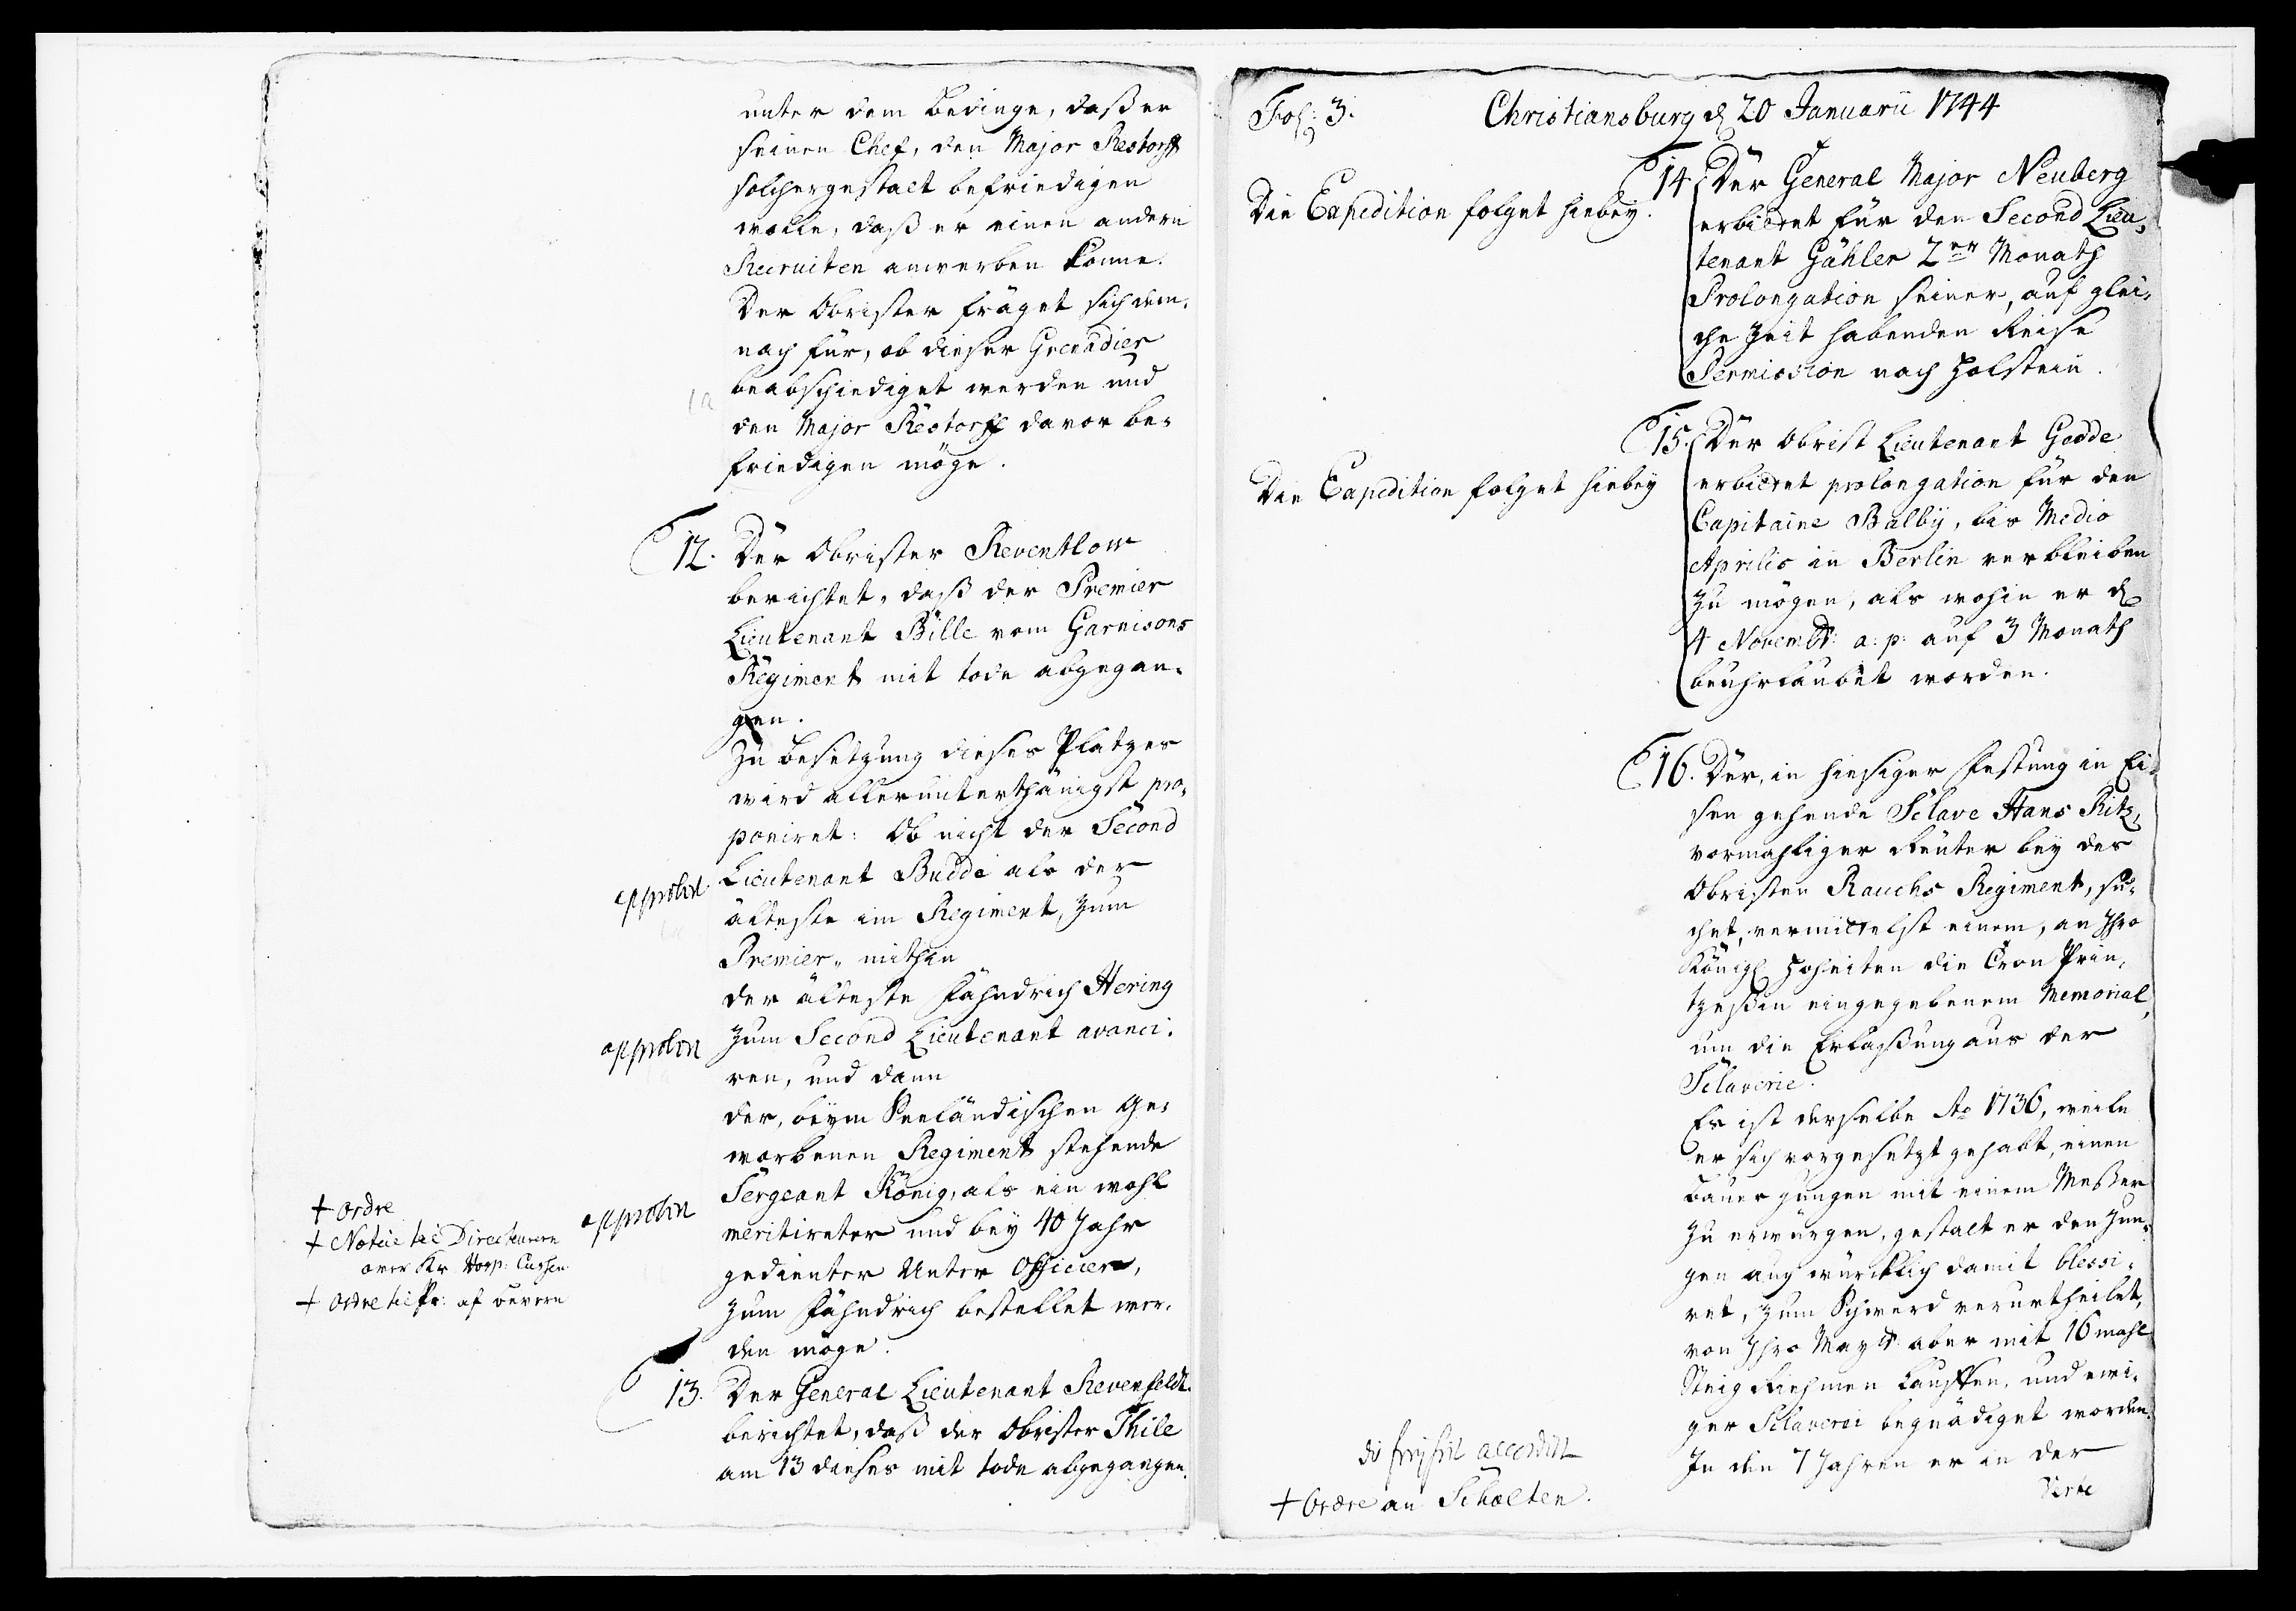 unter dem bedinge, daß er
seinen Chef, den Major Restorff
solchergestalt befriedigen
wolle, daß er einen andern
Recruiten anwerben könne.
Der Obrister fräget sich dem,
nach für, ob dieser Grenadier
beabschiediget werden und
den Major Restorff davor be,
friedigen möge.
12. Der Obrister Reventlow
berichtet, daß der Premier
Lieutenant Bille vom Garnisons
Regiment mit tode abgegan,
gen.
Zu besetzung dieses Platzes
wird allerunterthänigst pro,
poniret: Ob nicht der Second
approbirt Lieutenant Budde als der
älteste im Regiment, zum
Premier,, mithin
der älteste Fähndrich Hering
approbirt zum Second Lieutenant avanci,
ren, und dann
der, beym Seeländischen ge,
worbenen Regiment stehende
approbirt Sergeant König, als ein wohl
meritireter und bey 40 Jahr
gedienter Unter Officier,
zum Fähndrich bestellet wer,
den möge.
† ordre
† Notice til Directeuren
over Kr. Hosp: Cassen
† ordre til af
13. Der General Lieutenant Revenfeldt
berichtet, daß der Obrister Thile
am 13 dieses mit tode abgegangen.
Fol: 3. Christiansburg d 20 Januarii 1744
Die Expedition folget hiebey.
14. Der General Major Neuberg
erbittet für den Second Lieu,
tenant Gähler 2er Monath
Prolongation seiner, auf glei,
che Zeit habenden Reise
Permission nach Holstein.
Die Expedition folget hiebey
15. Der Obrist Lieutenant Gadde
erbittet prolongation für den
Capitaine Balby, bis Medio
Aprilis in Berlin verbleiben
zu mögen, als wohin er d
4 Novembr: a: p: auf 3 Monath
beuhrlaubet worden.
16. Der, in hiesiger Festung in Ei,
sen gehende Sclave Hans Ritz,
vormahliger Reuter bey des
Obristen Rauchs Regiment, su,
chet, vermittelst einem, an Ihro
Königl Hoheiten die Cron Prin,
tzeßin eingegebenem Memorial,
um die Erlaßung aus der
Sclaverie.
Es ist derselbe Ao 1736, weile
er sich vorgesetzt gehabt, einen
Bauer Jungen mit einem Meßer
zu erwürgen, gestalt er den Jun,
gen auch würcklich damit blessi,
ret, zum Schwerd verurtheilet,
von Ihro Mayt: aber mit 16 mahl
Steig Riehmen lauffen, und ewi,
ger Sclaverei begnädiget worden.
In den 7 Jahren er in der
Verte
die freyheit accordirt
† Ordre an Scholten.